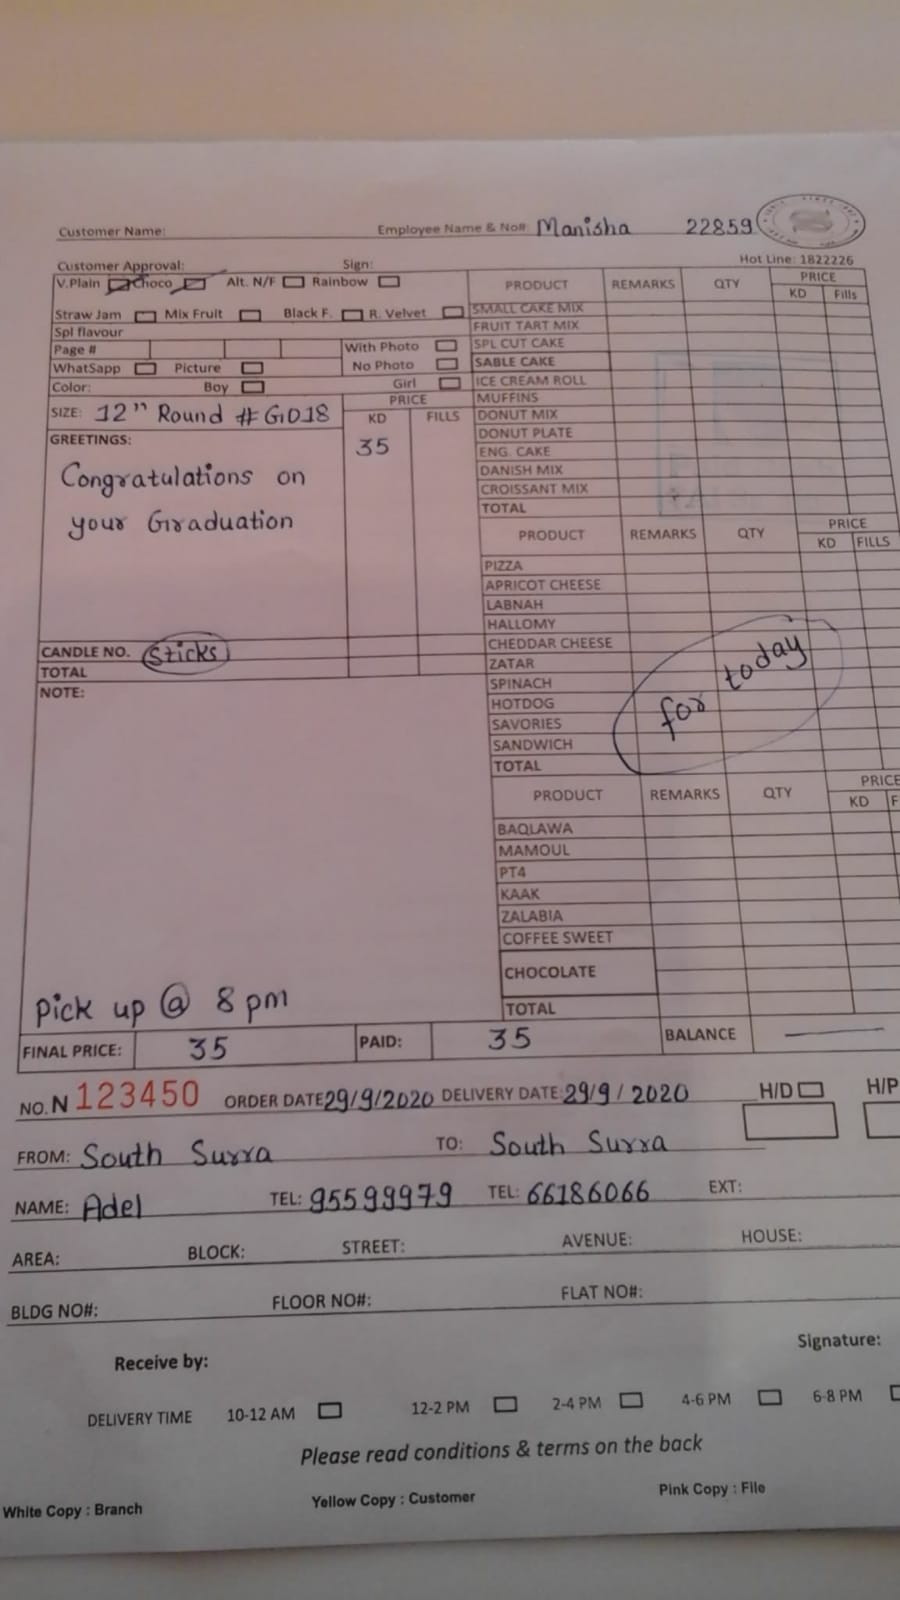 Customer Name: Employee Name & No#: Manisha 22859
Customer Approval: Sign: Hot Line: 1822226
V.Plain Choco Alt. N/F Rainbow
Straw Jam Mix Fruit Black F. R. Velvet
Spl flavour
Page # With Photo
WhatsApp Picture No Photo
Color: Boy Girl
SIZE: 12" Round # GD18 PRICE
KD FILLS
GREETINGS: 35
Congratulations on
your Graduation
CANDLE NO. Sticks
TOTAL
NOTE:
Pick up @ 8 pm
PRODUCT REMARKS QTY PRICE
KD Fills
SMALL CAKE MIX
FRUIT TART MIX
SPL CUT CAKE
SABLE CAKE
ICE CREAM ROLL
MUFFINS
DONUT MIX
DONUT PLATE
ENG. CAKE
DANISH MIX
CROISSANT MIX
TOTAL
PRODUCT REMARKS QTY PRICE
KD FILLS
PIZZA
APRICOT CHEESE
LABNAH
HALLOMY
CHEDDAR CHEESE
ZATAR
SPINACH
HOTDOG
SAVORIES
SANDWICH
TOTAL
for today
PRODUCT REMARKS QTY PRICE
KD F
BAQLAWA
MAMOUL
PT4
KAAK
ZALABIA
COFFEE SWEET
CHOCOLATE
TOTAL
FINAL PRICE: 35 PAID: 35 BALANCE
NO. N 123450 ORDER DATE 29/9/2020 DELIVERY DATE: 29/9/2020 H/D H/P
FROM: South Surra TO: South Surra
NAME: Adel TEL: 95599979 TEL: 66186066 EXT:
AREA: BLOCK: STREET: AVENUE: HOUSE:
BLDG NO#: FLOOR NO#: FLAT NO#:
Receive by: Signature:
DELIVERY TIME 10-12 AM 12-2 PM 2-4 PM 4-6 PM 6-8 PM
Please read conditions & terms on the back
White Copy : Branch Yellow Copy : Customer Pink Copy : File